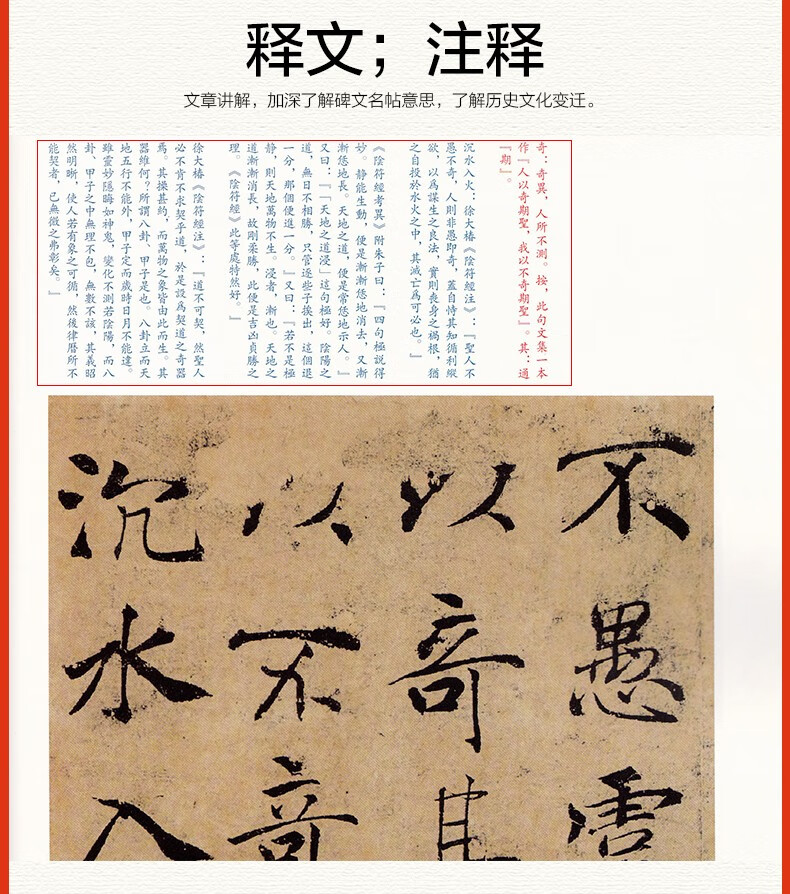 释文；注释
文章讲解，加深了解碑文名帖意思，了解历史文化变迁。
奇：奇異，人所不測。按，此句文集一本
作『人以奇期聖，我以不奇期聖』。其：通
『期』。
沉水入火：徐大椿《陰符經注》：『聖人不
愚不奇，人則非愚即奇，蓋自恃其知循利縱
欲，以爲謀生之良法，實則喪身之禍根，猶
之自投於水火之中，其滅亡爲可必也。』
《陰符經考異》附朱子曰：『四句極說得
妙。靜能生動，便是漸漸恁地消去，又漸
漸恁地長。天地之道，便是常恁地示人。』
又曰：『「天地之道浸」這句極好。陰陽之
道，無日不相勝，只管逐些子挨出，這個退
一分，那個便進一分。』又曰：『若不是極
靜，則天地萬物不生。浸者，漸也。天地之
道漸漸消長，故剛柔勝，此便是吉凶貞勝之
理。《陰符經》此等處特然好。』
徐大椿《陰符經注》：『道不可契，然聖人
必不肯不求契乎道，於是設爲契道之奇器
焉。其操甚約，而萬物之象皆由此而生。其
器維何？所謂八卦、甲子是也。八卦立而天
地五行不能外，甲子定而歲時日月不能違。
雖靈妙隱晦如神鬼，變化不測若陰陽，而八
卦、甲子之中無理不包，無數不該，其義昭
然明晰，使人若有象之可循，然後律曆所不
能契者，已無微之弗彰矣。』
不愚虞
以奇其
以不奇
沉水入